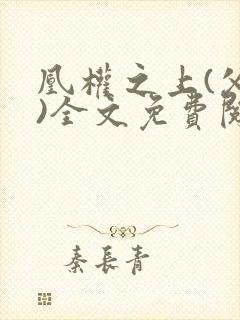 凰權之上(父
)全文免費閱
秦長青